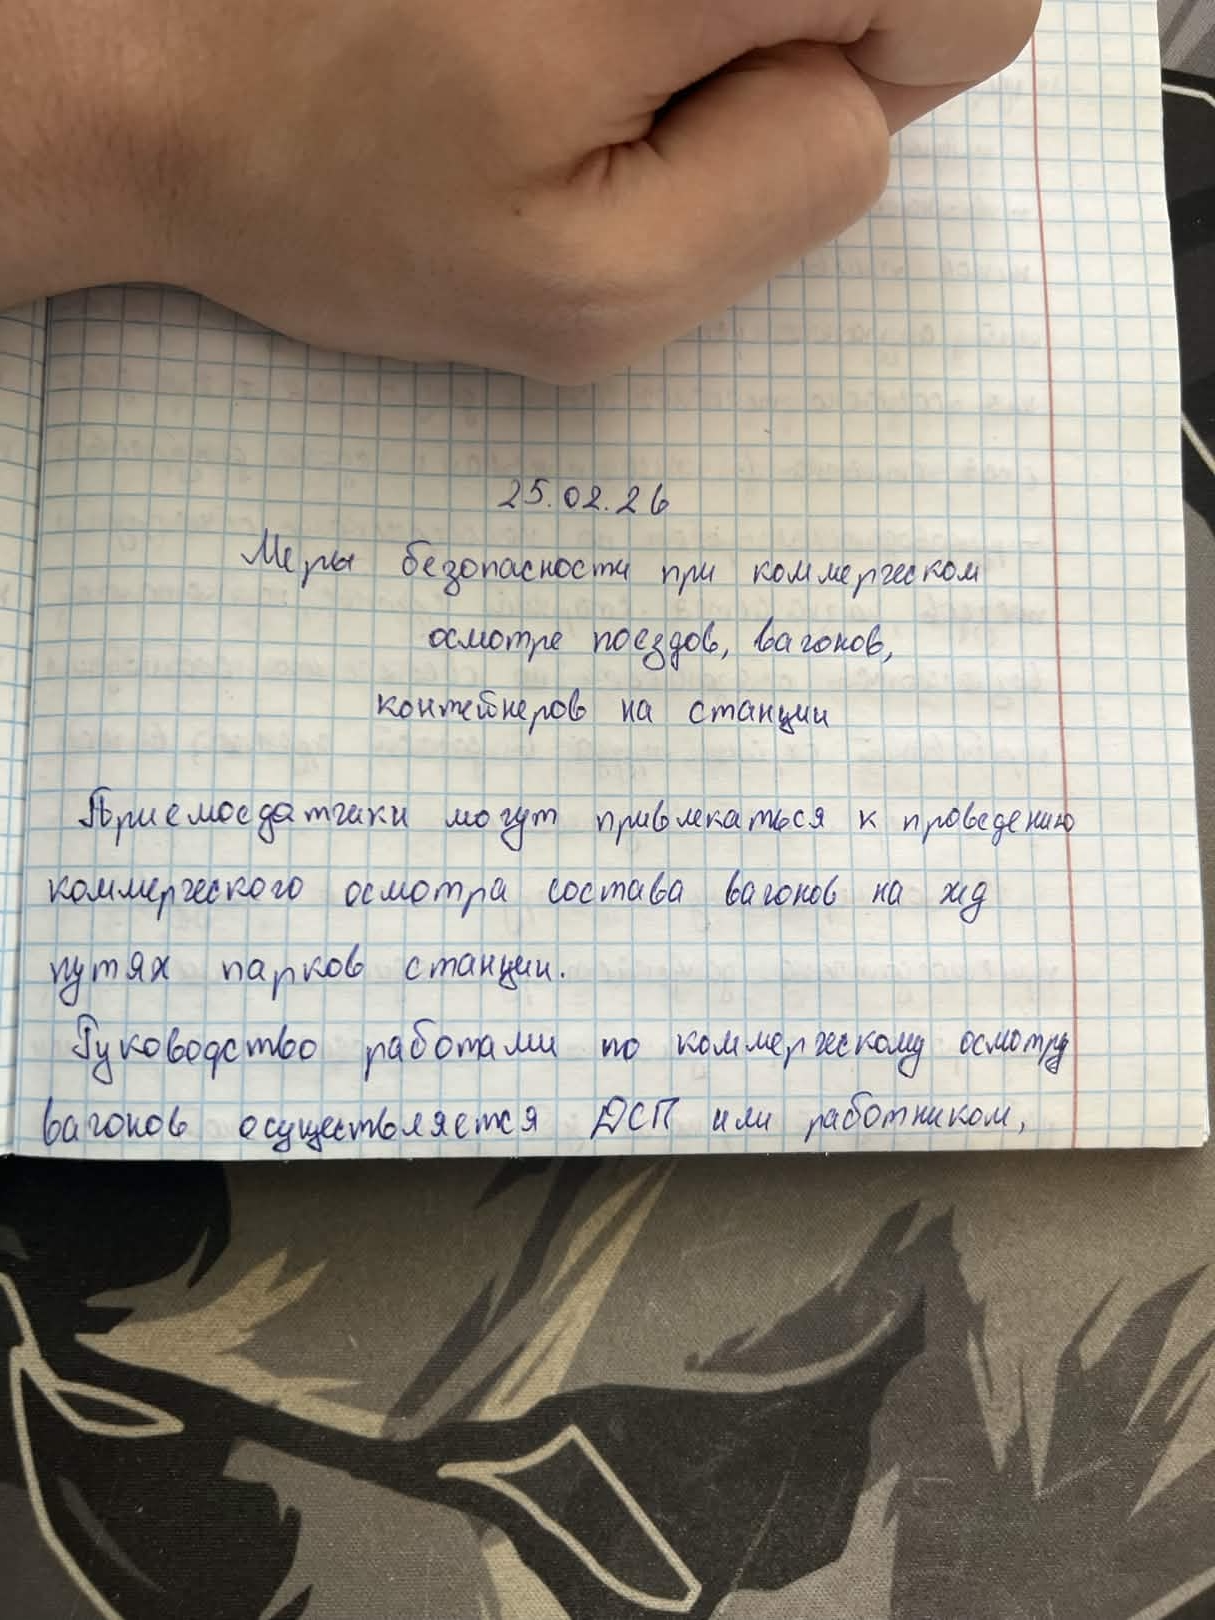 25.02.26
Меры безопасности при коммерческом
осмотре поездов, вагонов,
контейнеров на станции
Приемосдатчики могут привлекаться к проведению
коммерческого осмотра состава вагонов на жд
путях парков станции.
Руководство работами по коммерческому осмотру
вагонов осуществляется ДСП или работником,